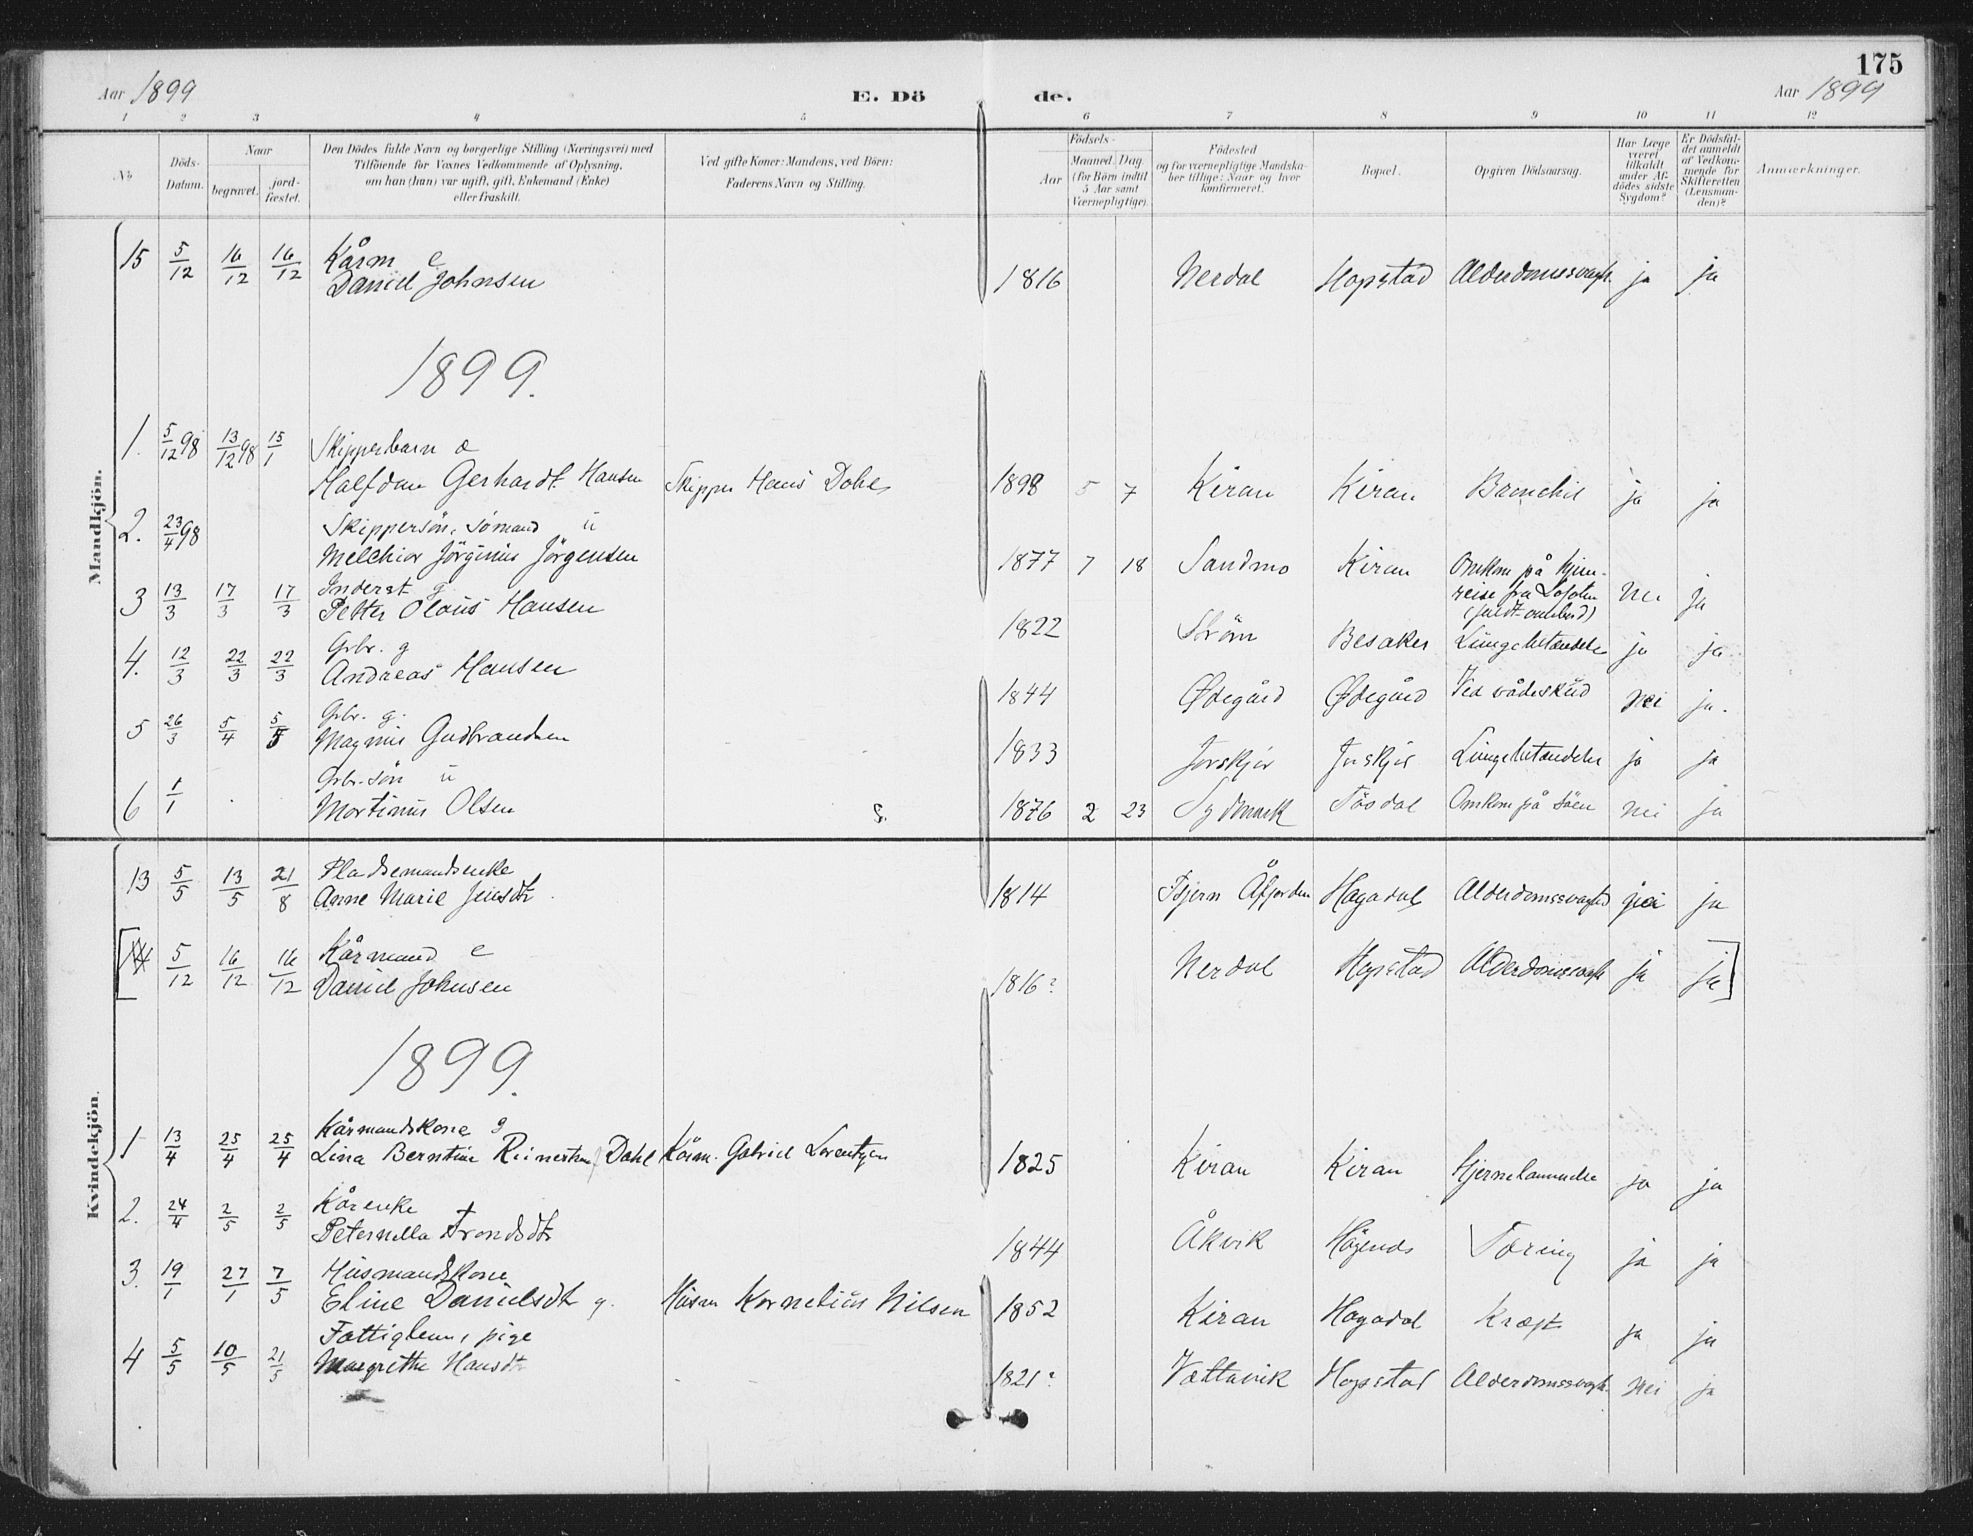 175
Aar 1899 E. Dö de. Aar 1899
1 2 3 4 5 6 7 8 9 10 11 12
No. Döds-Datum. Naar begravet. jord-fæstet. Den Dödes fulde Navn og borgerlige Stilling (Næringsvei) med Tilföiende for Voxnes Vedkommende af Oplysning, om han (hun) var ugift, gift, Enkemand (Enke) eller fraskilt. Ved gifte Koner: Mandens, ved Börn: Faderens Navn og Stilling. Födsels- Aar Maaned Dag (for Börn indtil 5 Aar samt Værnepligtige). Födested og for værnepligtige Mandskaber tillige: Naar og hvor konfirmeret. Bopæl. Opgiven Dödsaarsag. Har Læge været tilkaldt under Afdödes sidste Sygdom? Er Dödsfaldet anmeldt af Vedkommende for Skifteretten (Lensmanden)? Anmærkninger.
Mandkjön.
15 5/12 16/12 16/12 Kårm e
Daniel Johnsen 1816 Nerdal Hopstad Alderdomssvagh. ja ja
1899.
1. 5/12 98 13/12 98 15/1 Skipperbarn
Halfdan Gerhardt Hansen Skipper Hans Dahl 1898 5 7 Kiran Kiran Bronchit ja ja
2. 23/4 98 Skippersön, sömand u
Melchior Jörginus Jörgensen 1877 7 18 Sandmo Kiran Omkom på hjem-
reise fra Lofoten nei ja
3 13/3 17/3 17/3 Inderst g
Petter Olaus Hansen 1822 Ström Besaker Lungebetændelse ja ja
4. 12/3 22/3 22/3 Gbr. g
Andreas Hansen 1844 Ødegård Ødegård Ved vådeskud nei ja.
5 26/3 5/4 5/5 Gbr. g.
Magnus Gudbrandsen 1833 Jorskjör Jorskjör Lungebetændelse ja ja
6 1/1 Gbr. sön u
Mortinus Olsen 1876 2 23 Sydmark Tösdal Omkom på söen nei ja
Kvindekjön.
13 5/5 13/5 21/8 Pladsemandsenke
Anne Marie Jensdtr. 1814 Tbjern Åfjorden Hagadal Alderdomssvaghed ja
[14 5/12 16/12 16/12 Kårmand e
Daniel Johnsen 1816? Nerdal Hopstad Alderdomssvagh ja ja]
1899.
1 13/4 25/4 25/4 Kårmandskone g
Lina Berntine Reinertsen f Dahl Kårm. Gabriel Lorentzen 1825 Kiran Kiran Hjernelammelse ja ja
2. 24/4 2/5 2/5 Kårenke
Peternella Trondsdtr 1844 Åkvik Tæring ja ja
3. 19/1 27/1 7/5 Husmandskone
Eline Danielsdtr g. Husm Kornelius Nilsen 1852 Kiran Hagadal Kræft ja ja
4 5/5 10/5 21/5 Fattiglem, pige
Margrethe Hansdtr 1821? Vættavik Hopstad Alderdomssvagh. nei ja